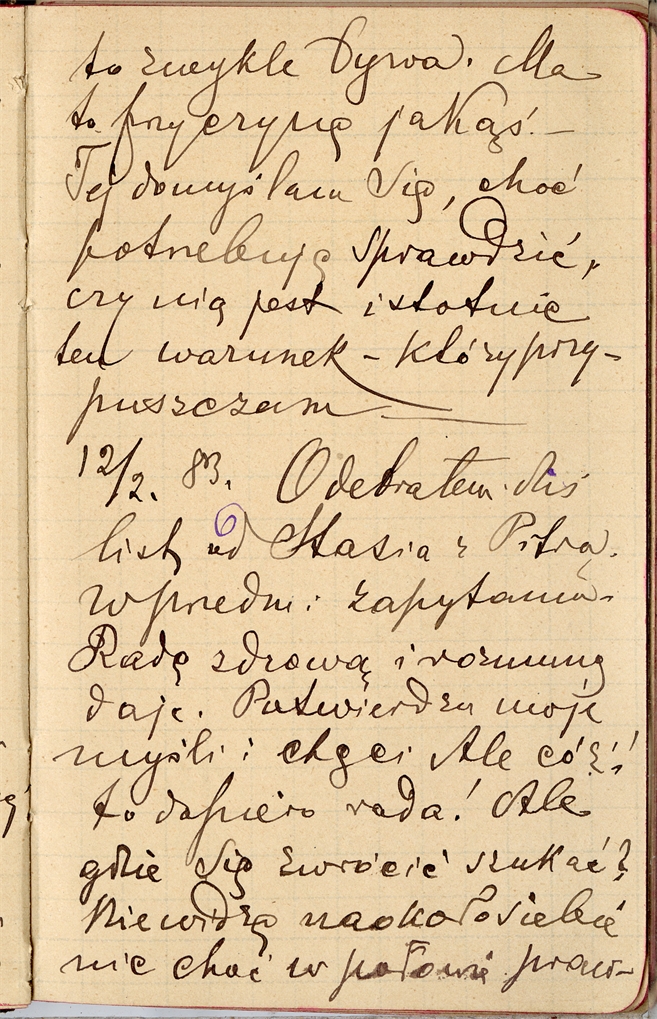 to zwykle bywa. Ma
to przyczynę jakąś. –
Tej domyślam się, choć
potrzebuję sprawdzić,
czy nią jest istotnie
ten warunek – który przy-
puszczam —
12/2. 83. Odebrałem dziś
list od Stasia z Pitra.
w przedm: zapytania.
Radę zdrową i rozumną
daje. Potwierdza moje
myśli i chęci Ale cóż!
to dopiero rada! Ale
gdzie się zwrócić szukać?
Nie widzę naokoło siebie
nic choć w połowie praw-